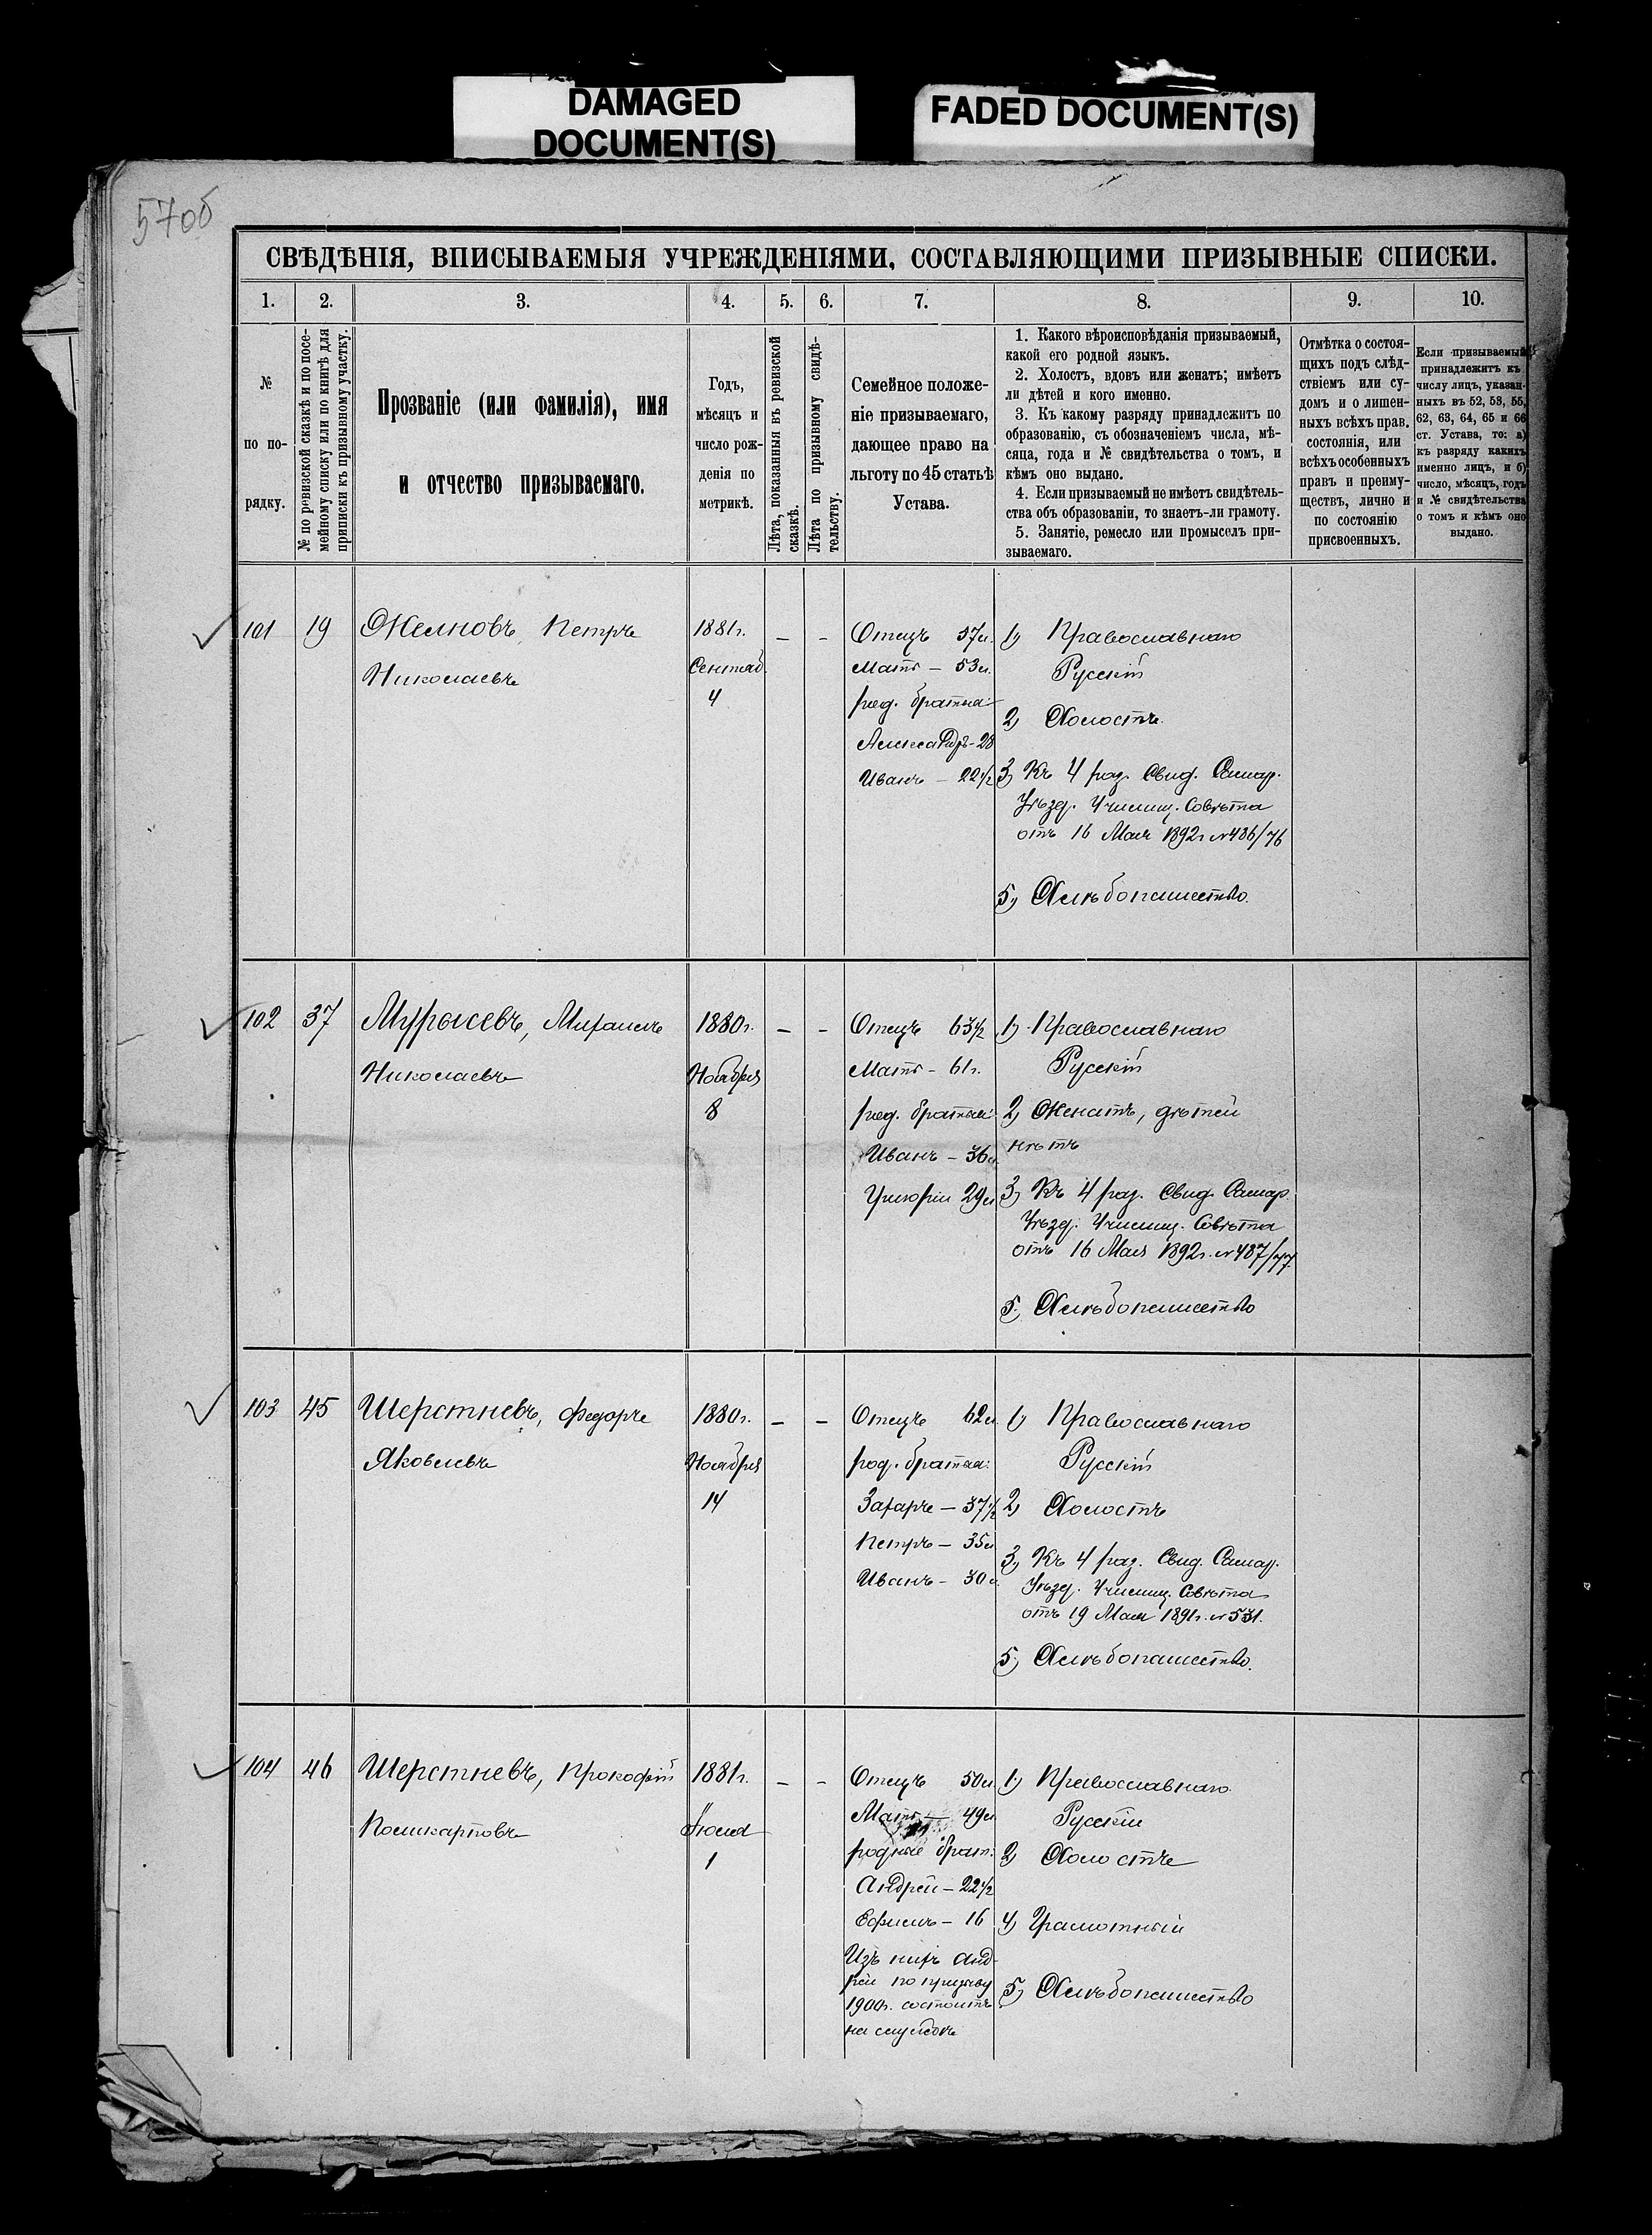 DAMAGED
DOCUMENT(S)
FADED DOCUMENT(S)
570б
СВѢДѢНІЯ, ВПИСЫВАЕМЫЯ УЧРЕЖДЕНІЯМИ, СОСТАВЛЯЮЩИМИ ПРИЗЫВНЫЕ СПИСКИ.
1. 2. 3. 4. 5. 6. 7. 8. 9. 10.
№
по по-
рядку.
№ по ревизской сказкѣ и по посе-
мейному списку или по книгѣ для
приписки къ призывному участку.
Прозваніе (или фамилія), имя
и отчество призываемаго.
Годъ,
мѣсяцъ и
число рож-
денія по
метрикѣ.
Лѣта, показанныя въ ревизской
сказкѣ.
Лѣта по призывному свидѣ-
тельству.
Семейное положе-
ніе призываемаго,
дающее право на
льготу по 45 статьѣ
Устава.
1. Какого вѣроисповѣданія призываемый,
какой его родной языкъ.
2. Холостъ, вдовъ или женатъ; имѣетъ
ли дѣтей и кого именно.
3. Къ какому разряду принадлежитъ по
образованію, съ обозначеніемъ числа, мѣ-
сяца, года и № свидѣтельства о томъ, и
кѣмъ оно выдано.
4. Если призываемый не имѣетъ свидѣтель-
ства объ образованіи, то знаетъ-ли грамоту.
5. Занятіе, ремесло или промыселъ при-
зываемаго.
Отмѣтка о состоя-
щихъ подъ слѣд-
ствіемъ или су-
домъ и о лишен-
ныхъ всѣхъ прав.
состоянія, или
всѣхъ особенныхъ
правъ и преиму-
ществъ, лично и
по состоянію
присвоенныхъ.
Если призываемый
принадлежитъ къ
числу лицъ, указан-
ныхъ въ 52, 53, 55,
62, 63, 64, 65 и 66
ст. Устава, то: а)
къ разряду какихъ
именно лицъ, и б)
число, мѣсяцъ, годъ
и № свидѣтельства
о томъ и кѣмъ оно
выдано.
101 19 Желновъ, Петръ
Николаевъ
1881г.
Сентяб.
4
– –
Отецъ 57л.
Мать – 53л.
род. братья:
Александръ – 28
Иванъ – 22½
1) Православнаго
Русскій
2) Холостъ.
3) Къ 4 раз. Свид. Самар.
Уѣзд. Училищ. Совѣта
отъ 16 Мая 1892г. №486/76
5) Хлѣбопашество.
102 37 Мурысевъ, Михаилъ
Николаевъ
1880г.
Ноября
8
– –
Отецъ 63½
Мать – 61г.
род. братья:
Иванъ – 36л.
Григорій 29л
1) Православнаго
Русскій
2) Женатъ, дѣтей
нѣтъ
3) Къ 4 раз. Свид. Самар.
Уѣзд. Училищ. Совѣта
отъ 16 Мая 1892г. №487/77.
5) Хлѣбопашество
103 45 Шерстневъ, Федоръ
Яковлевъ
1880г.
Ноября
14
– –
Отецъ 62л.
род. братья:
Захаръ – 37½
Петръ – 35л
Иванъ – 30л.
1) Православнаго
Русскій
2) Холостъ
3) Къ 4 раз. Свид. Самар.
Уѣзд. Училищ. Совѣта
отъ 19 Мая 1891г. №531.
5) Хлѣбопашество.
104 46 Шерстневъ, Прокофій
Поликарповъ
1881г.
Іюля
1
– –
Отецъ 50л
Мать – 49л.
родные брат.:
Андрей – 22½
Ефимъ – 16
Изъ нихъ Анд-
рей по призыву
1900г. состоитъ
на службѣ
1) Православнаго
Русскій
2) Холостъ
4) Грамотный
5) Хлѣбопашество